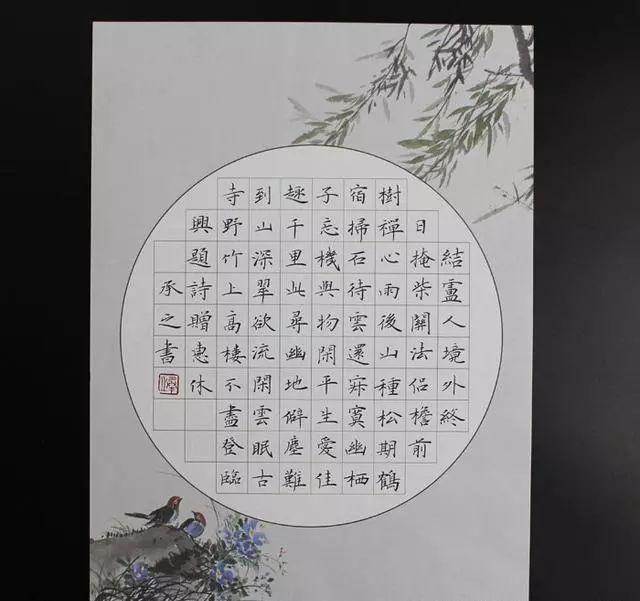 結廬人境外終
日掩柴關法侶檐前
樹禪心雨後山種松期鶴
宿掃石待雲還寂寞幽栖
子忘機與物閑平生愛佳
趣千里此尋幽地僻塵難
到山深翠欲流閑雲眠古
寺野竹上高樓不盡登臨
興題詩贈惠休
承之書